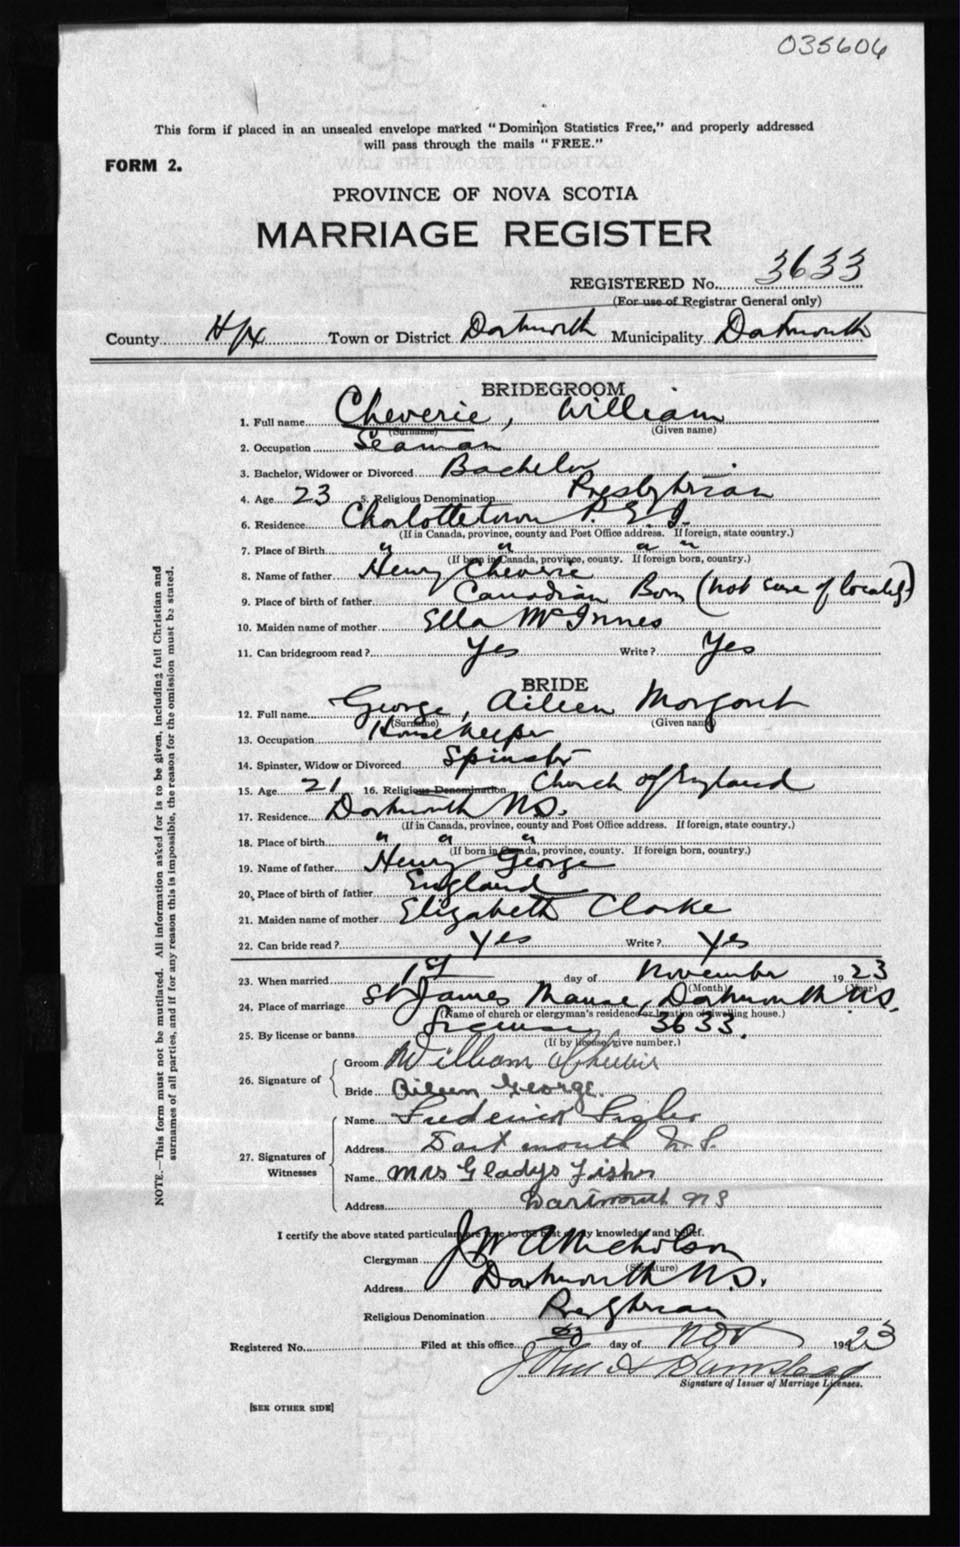 035606
This form if placed in an unsealed envelope marked "Dominion Statistics Free," and properly addressed
will pass through the mails "FREE."
FORM 2.
PROVINCE OF NOVA SCOTIA
MARRIAGE REGISTER
REGISTERED No. 3633
(For use of Registrar General only)
County Hfx Town or District Dartmouth Municipality Dartmouth
BRIDEGROOM
1. Full name Cheverie, William
(Surname) (Given name)
2. Occupation Seaman
3. Bachelor, Widower or Divorced Bachelor
4. Age 23 5. Religious Denomination Presbyterian
6. Residence Charlottetown P.E.I.
(If in Canada, province, county and Post Office address. If foreign, state country.)
7. Place of Birth " " " "
(If born in Canada, province, county. If foreign born, country.)
8. Name of father Henry Cheverie
9. Place of birth of father Canadian Born (not sure of locality)
10. Maiden name of mother Ella McInnes
11. Can bridegroom read? Yes Write? Yes
BRIDE
12. Full name George, Aileen Margaret
(Surname) (Given name)
13. Occupation Housekeeper
14. Spinster, Widow or Divorced Spinster
15. Age 21 16. Religious Denomination Church of England
17. Residence Dartmouth N.S.
(If in Canada, province, county and Post Office address. If foreign, state country.)
18. Place of birth " " "
(If born in Canada, province, county. If foreign born, country.)
19. Name of father Henry George
20. Place of birth of father England
21. Maiden name of mother Elizabeth Clarke
22. Can bride read? Yes Write? Yes
23. When married 1st day of November 1923
(Month) (Year)
24. Place of marriage St James Manse, Dartmouth N.S.
(Name of church or clergyman's residence or location of dwelling house.)
25. By license or banns License 3633.
(If by license, give number.)
26. Signature of
Groom William Cheverie
Bride Aileen George.
27. Signatures of Witnesses
Name Frederick
Address Dartmouth N.S.
Name Mrs Gladys Fisher
Address Dartmouth N S
I certify the above stated particulars are true to the best of my knowledge and belief.
Clergyman J W A Nicholson
(Signature)
Address Dartmouth N.S.
Religious Denomination Presbyterian
Registered No. Filed at this office day of Nov 1923
John H
Signature of Issuer of Marriage Licenses.
[SEE OTHER SIDE]
NOTE.—This form must not be mutilated. All information asked for is to be given, including full Christian and
surnames of all parties, and if for any reason this is impossible, the reason for the omission must be stated.